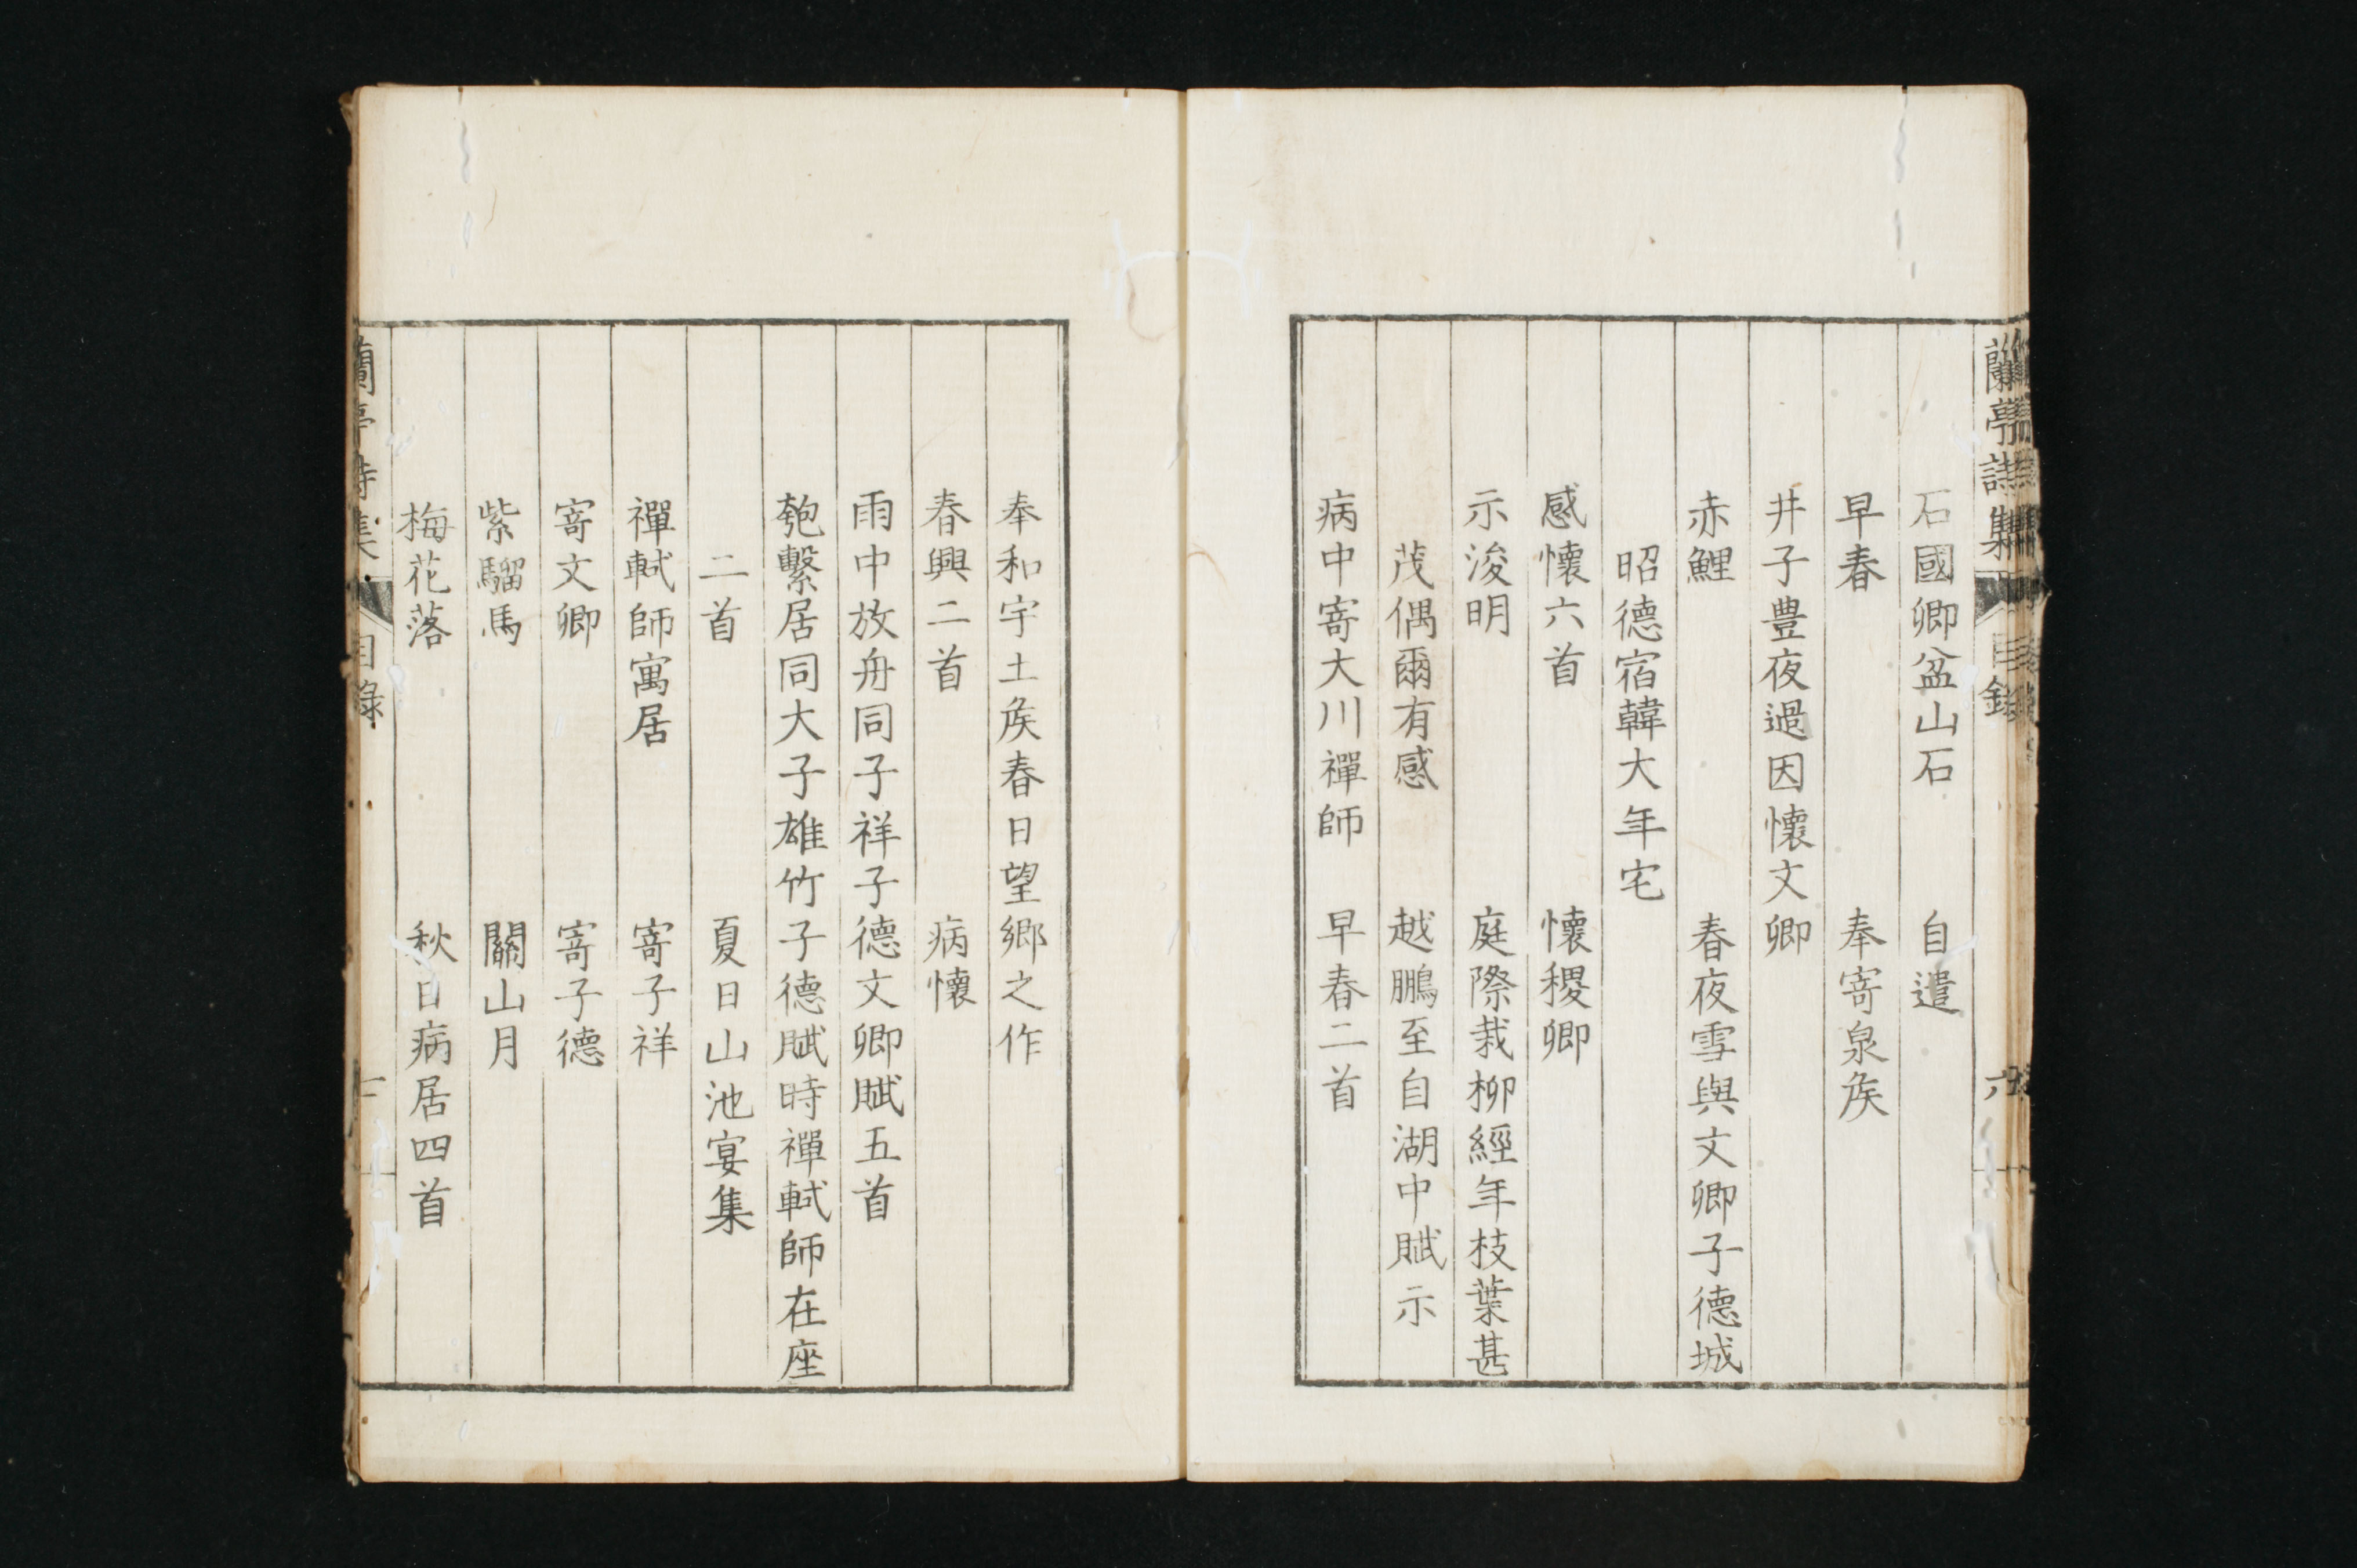 蘭亭詩集 目錄 六
石國卿盆山石 自遣
早春 奉寄泉矦
井子豊夜過因懷文卿
赤鯉 春夜雪與文卿子德城
昭德宿韓大年宅
感懷六首 懷稷卿
示浚明 庭際栽柳經年枝葉甚
茂偶爾有感 越鵬至自湖中賦示
病中寄大川禪師 早春二首
奉和宇土矦春日望鄉之作
春興二首 病懷
雨中放舟同子祥子德文卿賦五首
匏繫居同大子雄竹子德賦時禪軾師在座
二首 夏日山池宴集
禪軾師寓居 寄子祥
寄文卿 寄子德
紫騮馬 關山月
梅花落 秋日病居四首
蘭亭詩集 目錄